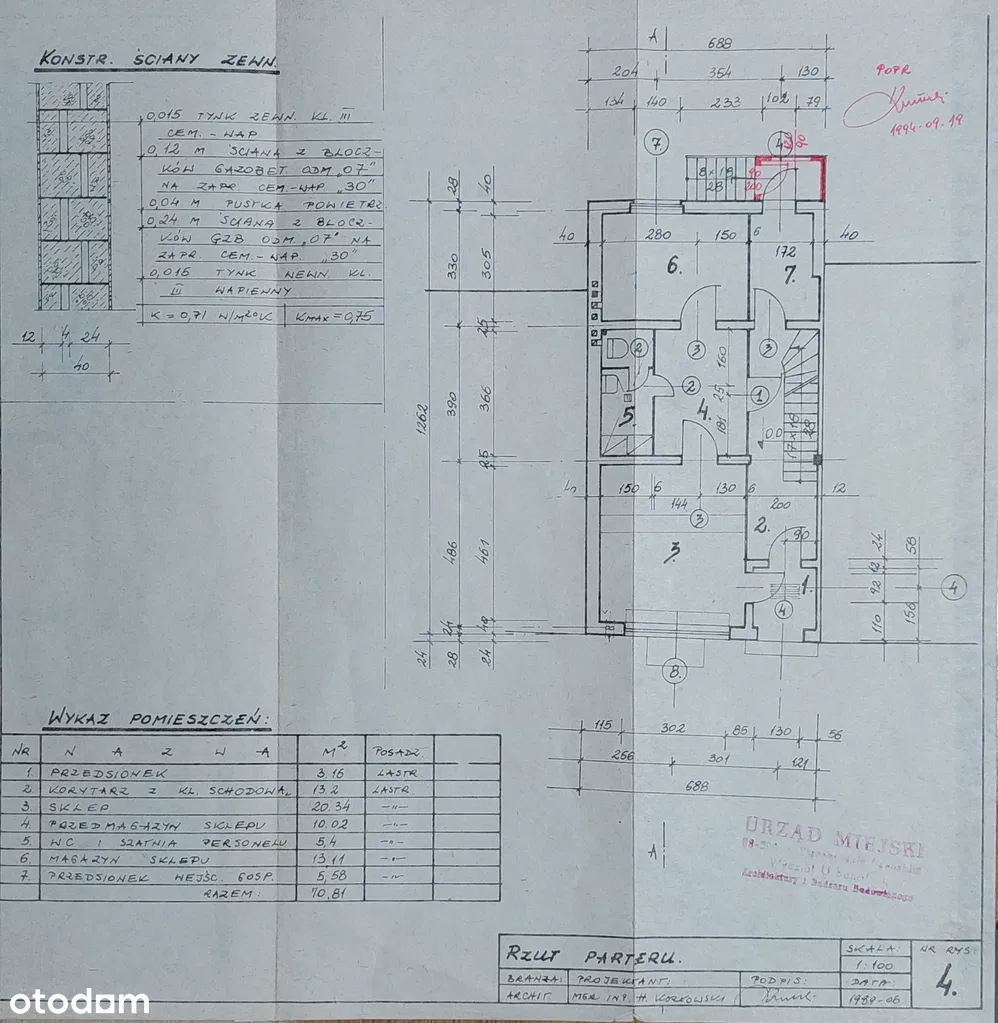 KONSTR. ŚCIANY ZEWN.
0,015 TYNK ZEWN. KL. III
CEM. - WAP
0,12 M ŚCIANA Z BLOCZ-
KÓW GAZOBET ODM. „07"
NA ZAPR. CEM.-WAP. „30"
0,04 M PUSTKA POWIETRZ
0,24 M ŚCIANA Z BLOCZ-
KÓW GZB ODM. „07" NA
ZAPR. CEM.-WAP. „30"
0,015 TYNK WEWN. KL.
III WAPIENNY
K = 0,71 W/M²°K KMAX = 0,75
12 4 24
40
A
688
204 354 130
134 140 233 102 79
POPR
1994-09-19
7 4
8 x 18
28
90
200
40 280 150 6 172 40
6. 7.
28 40
330 305
25
1262 390 366
25
486 461
24 28 24
2 3 3
160
2 1
25
5. 4.
181
0.0
17 x 16
28
150 6 130 6 200 12
144
3
2.
90
3.
1.
4
24 58
12
92 4
110 156
8.
115 302 85 130 56
266 301 121
688
A
WYKAZ POMIESZCZEŃ:
NR NAZWA M² POSADZ.
1. PRZEDSIONEK 3,16 LASTR
2. KORYTARZ Z KL. SCHODOWĄ 13,2 LASTR
3. SKLEP 20.34 —"—
4. PRZEDMAGAZYN SKLEPU 10.02 —"—
5. WC I SZATNIA PERSONELU 5,4 —"—
6. MAGAZYN SKLEPU 13,11 —"—
7. PRZEDSIONEK WEJŚC. GOSP. 5,58 —"—
RAZEM: 70,81
URZĄD MIEJSKI
Architektury i Nadzoru Budowlanego
RZUT PARTERU.
SKALA:
1:100
NR RYS:
4.
BRANŻA: PROJEKTANT: PODPIS: DATA:
ARCHIT. MGR INŻ. H. KOZŁOWSKI 1989-06
otodom